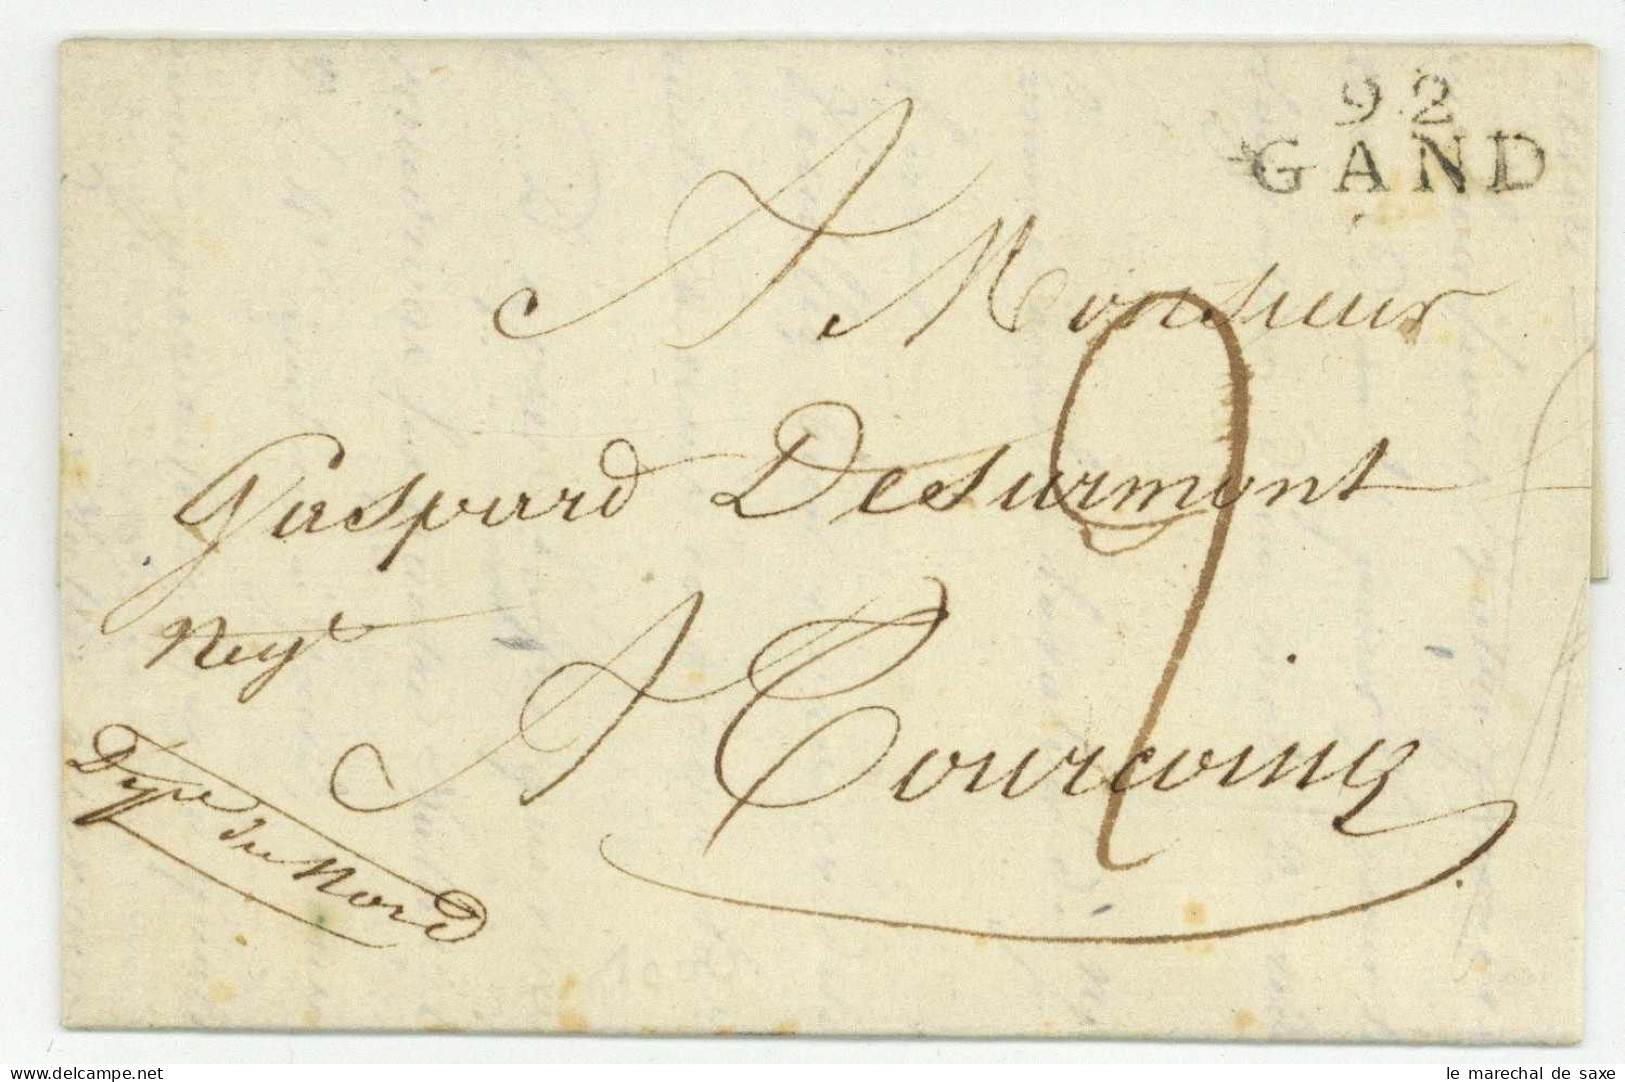 92
GAND
A Monsieur
Gaspard Desurmont
Negt
A Tourcoing
Dept du Nord
2
le marechal de saxe